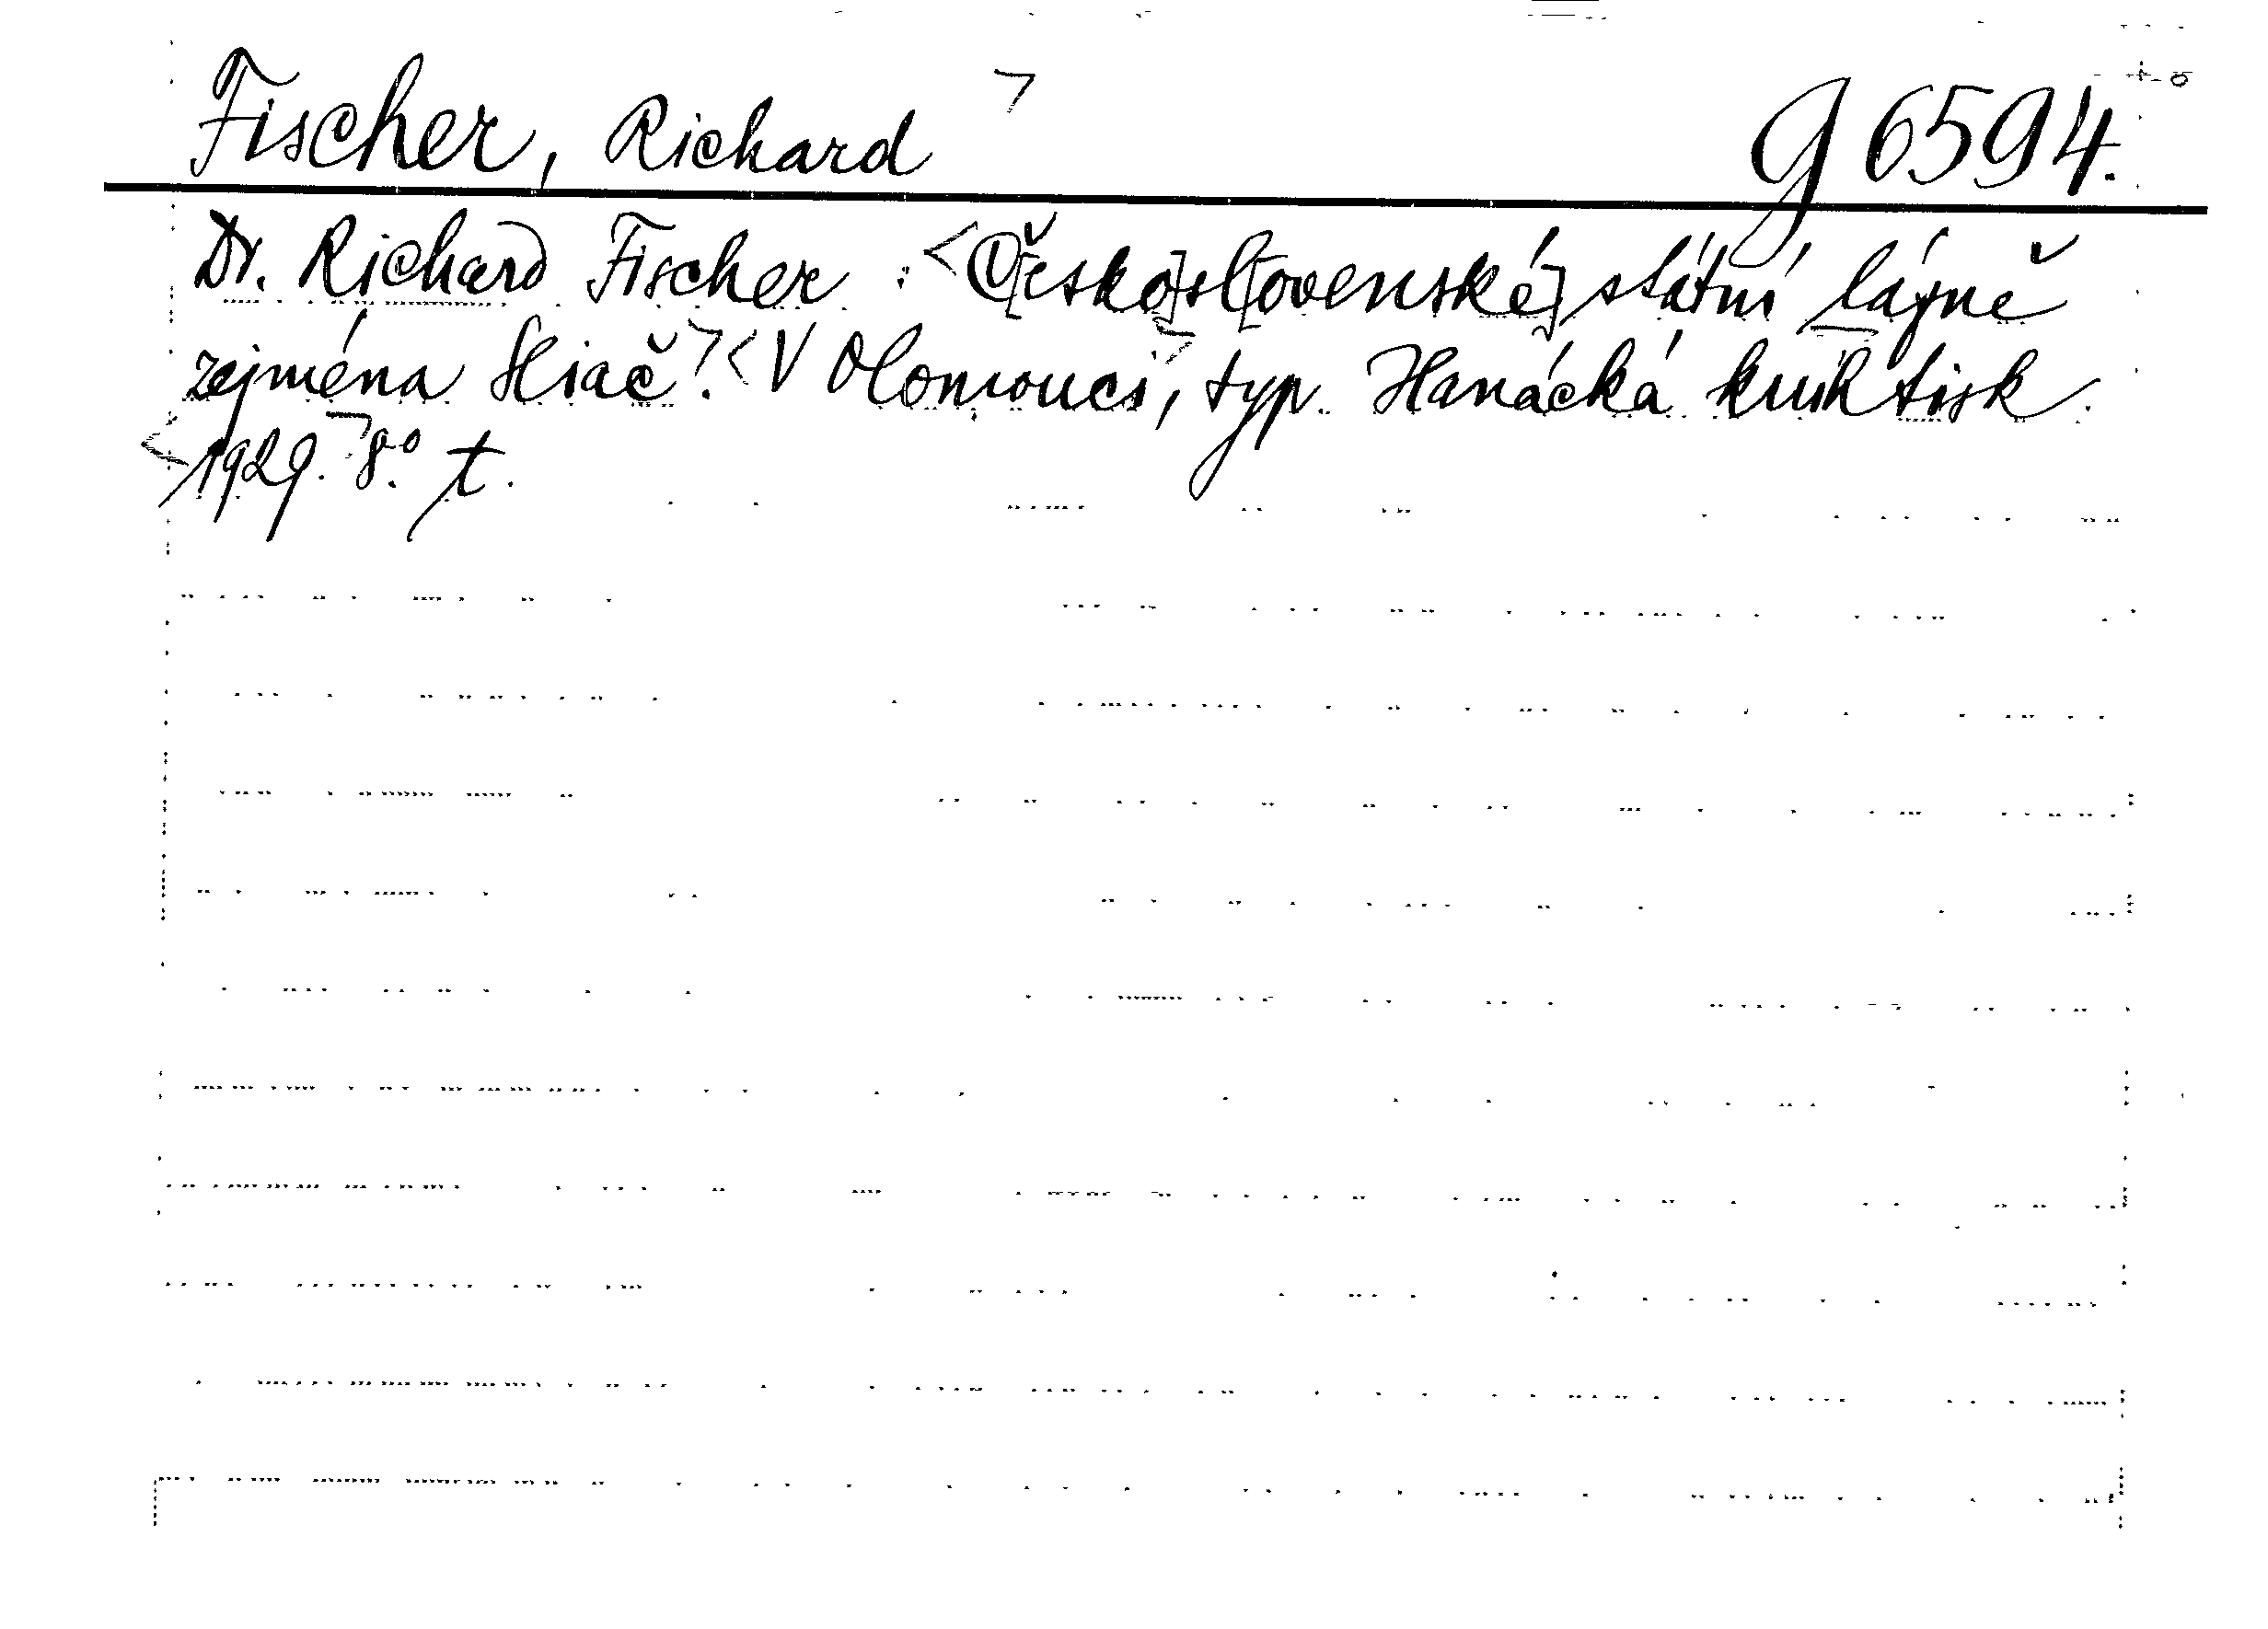 Fischer, Richard g 6594.
Dr. Richard Fischer : Č[esko]sl[ovenské] státní lázně
zejména Sliač. V Olomouci, typ. Hanácká knihtisk.
1929. 8.° t.